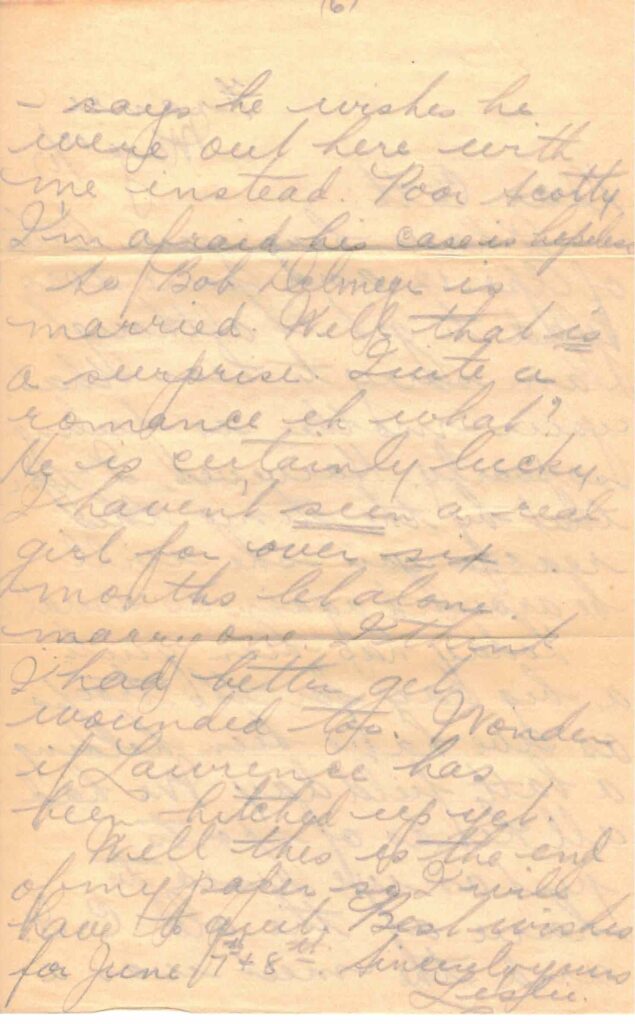 (6)
- says he wishes he
were out here with
me instead. Poor Scotty
I'm afraid his case is hopeless
So Bob is
married. Well that is
a surprise. Quite a
romance eh what?
He is certainly lucky.
I haven't seen a real
girl for over six
months let alone
marry one. I think
I had better get
wounded too. Wonder
if Lawrence has
been hitched up yet.
Well this is the end
of my paper so I will
have to quit. Best wishes
for June 7th + 8th. Sincerely yours
Leslie.